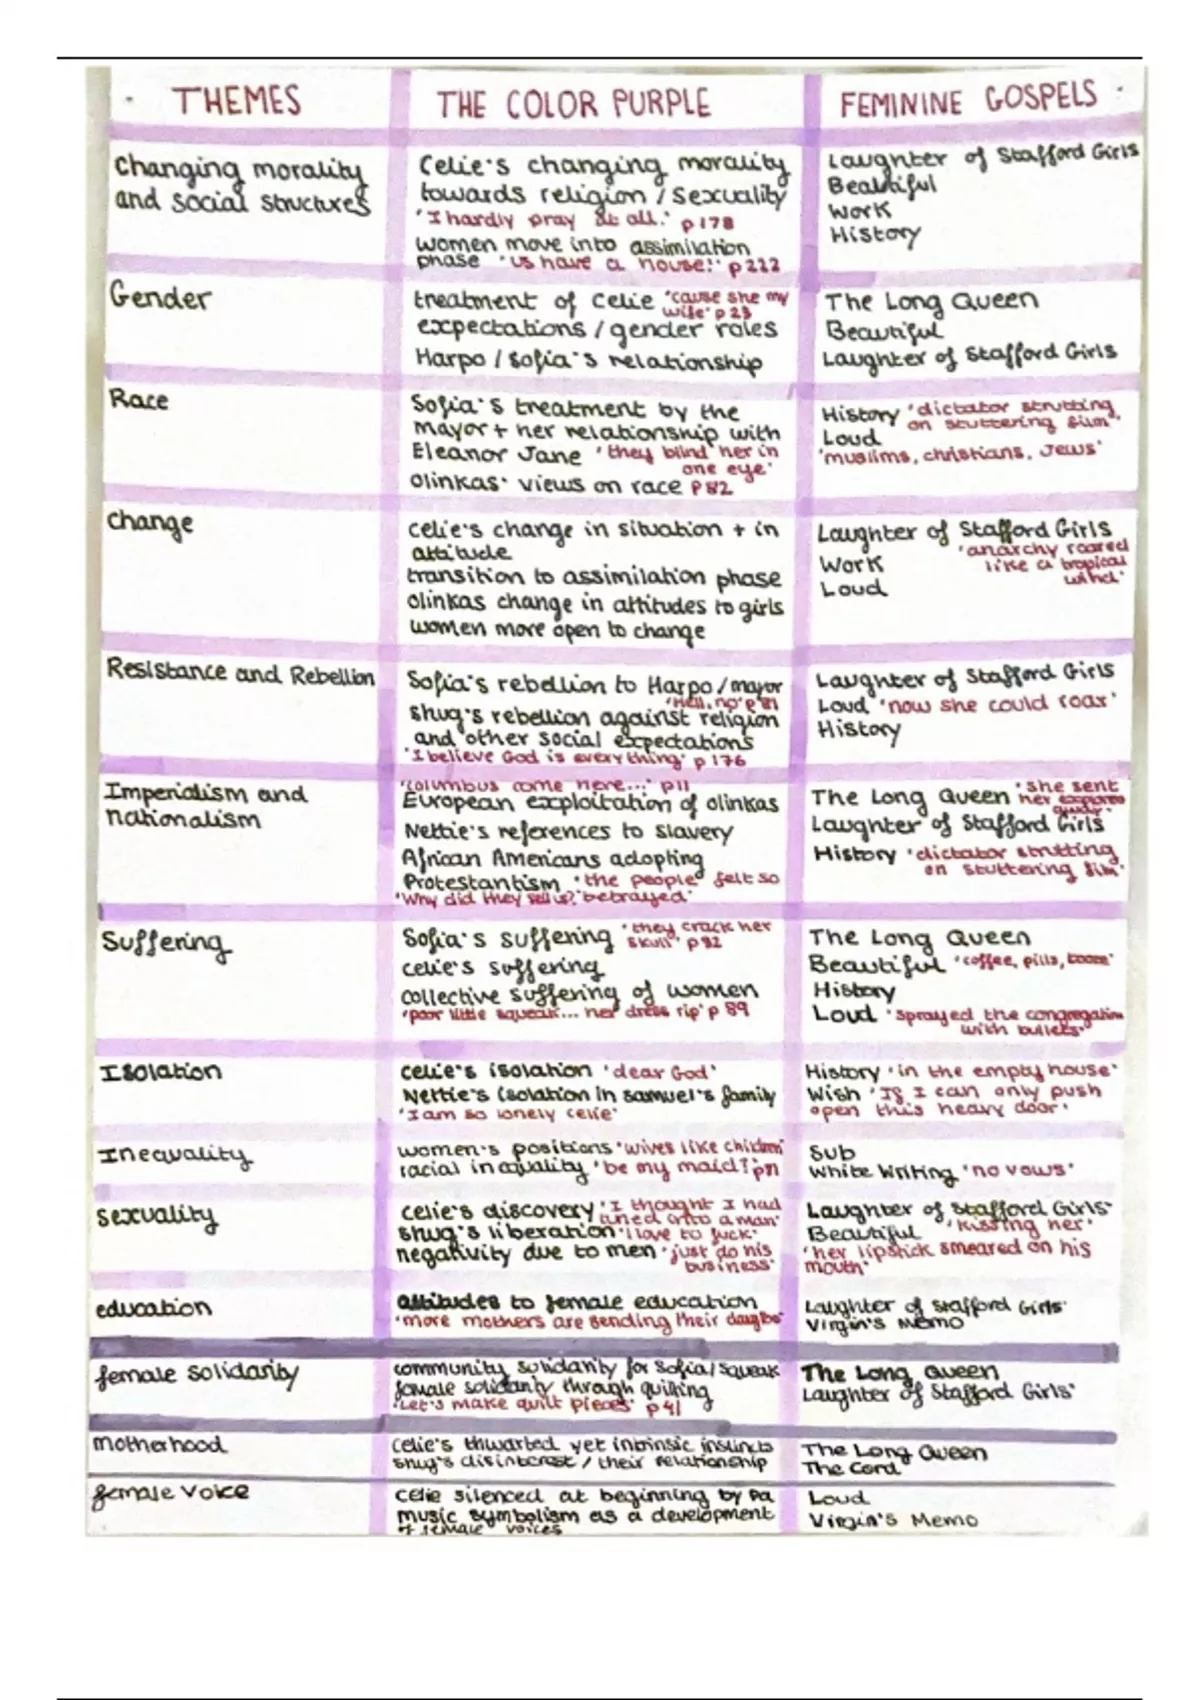 THEMES
THE COLOR PURPLE
FEMININE GOSPELS
Changing morality
and social structures
Celie's changing morality
towards religion / sexuality
'I hardly pray at all.' p178
women move into assimilation
phase 'us have a house!' p222
Laughter of Stafford Girls
Beautiful
Work
History
Gender
treatment of Celie 'cause she my
wife' p23
expectations / gender roles
Harpo / Sofia's relationship
The Long Queen
Beautiful
Laughter of Stafford Girls
Race
Sofia's treatment by the
mayor + her relationship with
Eleanor Jane 'they blind her in
one eye'
Olinkas' views on race p82
History 'dictator strutting
on stuttering film'
Loud
'muslims, christians, Jews'
Change
Celie's change in situation + in
attitude
transition to assimilation phase
Olinkas change in attitudes to girls
women more open to change
Laughter of Stafford Girls
'anarchy roared
Work like a tropical
wind'
Loud
Resistance and Rebellion
Sofia's rebellion to Harpo / mayor
'Hell, no' p81
Shug's rebellion against religion
and other social expectations
'I believe God is everything' p176
Laughter of Stafford Girls
Loud 'now she could roar'
History
Imperialism and
nationalism
'Columbus come here...' p11
European exploitation of olinkas
Nettie's references to slavery
African Americans adopting
Protestantism 'the people felt so
'Why did they sell us?' betrayed'
The Long Queen 'she sent
her explorers
away.'
Laughter of Stafford Girls
History 'dictator strutting
on stuttering film'
Suffering
Sofia's suffering 'they crack her
skull' p82
celie's suffering
collective suffering of women
'poor little squeak... her dress rip' p89
The Long Queen
Beautiful 'coffee, pills, booze'
History
Loud 'sprayed the congregation
with bullets'
Isolation
celie's isolation 'dear God'
Nettie's isolation in Samuel's family
'I am so lonely celie'
History 'in the empty house'
Wish 'If I can only push
open this heavy door'
Inequality
women's positions 'wives like children'
racial inequality 'be my maid?' p81
Sub
White Writing 'no vows'
sexuality
celie's discovery 'I thought I had
turned into a man'
shug's liberation 'I love to fuck'
negativity due to men 'just do his
business'
Laughter of Stafford Girls
Beautiful 'kissing her'
'her lipstick smeared on his
mouth'
education
attitudes to female education
'more mothers are sending their daughters'
Laughter of Stafford Girls
Virgin's Memo
female solidarity
community solidarity for Sofia / Squeak
female solidarity through quilting
'Let's make quilt pieces' p41
The Long Queen
Laughter of Stafford Girls
motherhood
celie's thwarted yet intrinsic instincts
shug's disinterest / their relationship
The Long Queen
The Cord
female voice
celie silenced at beginning by Pa
music symbolism as a development
of female voices
Loud
Virgin's Memo